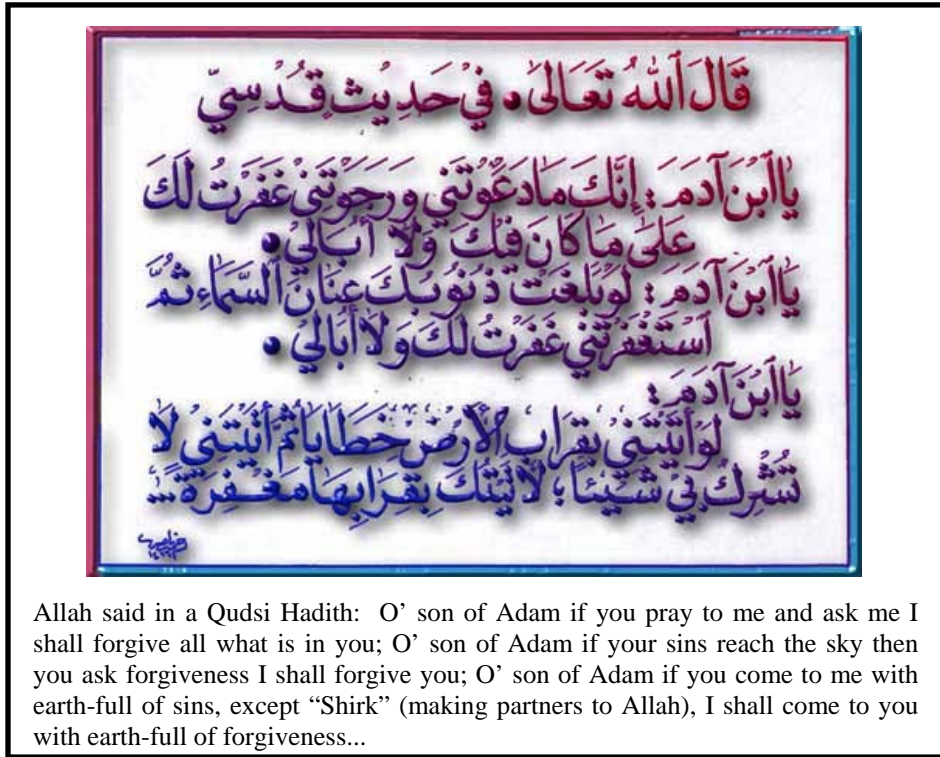 قَالَ ٱللهُ تَعَالىٰ • فِيْ حَدِيْثٍ قُدْسِيّ
يٰاٱبْنَ آدَمَ : إِنَّكَ مَادَعَوْتَنِي وَرَجَوْتَنِيْ غَفَرْتُ لَكَ
عَلىٰ مَاكَانَ فِيْكَ وَلَا أُبَالِيْ •
يَاٱبْنَ آدَمَ : لَوْبَلَغَتْ ذُنُوْبُكَ عِنَانَ ٱلسَّمَاءِ ثُمَّ
ٱسْتَغْفَرْتَنِي غَفَرْتُ لَكَ وَلَا أُبَالِيْ •
يَاٱبْنَ آدَمَ :
لَوْأَتَيْتَنِيْ بِقُرَابِ ٱلْأَرْضِ خَطَايَا ثُمَّ أَتَيْتَنِيْ لَا
تُشْرِكُ بِيْ شَيْئاً ؛ لَأَتَيْتُكَ بِقِرَابِهَا مَغْفِرَةً ...
Allah said in a Qudsi Hadith: O’ son of Adam if you pray to me and ask me I
shall forgive all what is in you; O’ son of Adam if your sins reach the sky then
you ask forgiveness I shall forgive you; O’ son of Adam if you come to me with
earth-full of sins, except “Shirk” (making partners to Allah), I shall come to you
with earth-full of forgiveness...